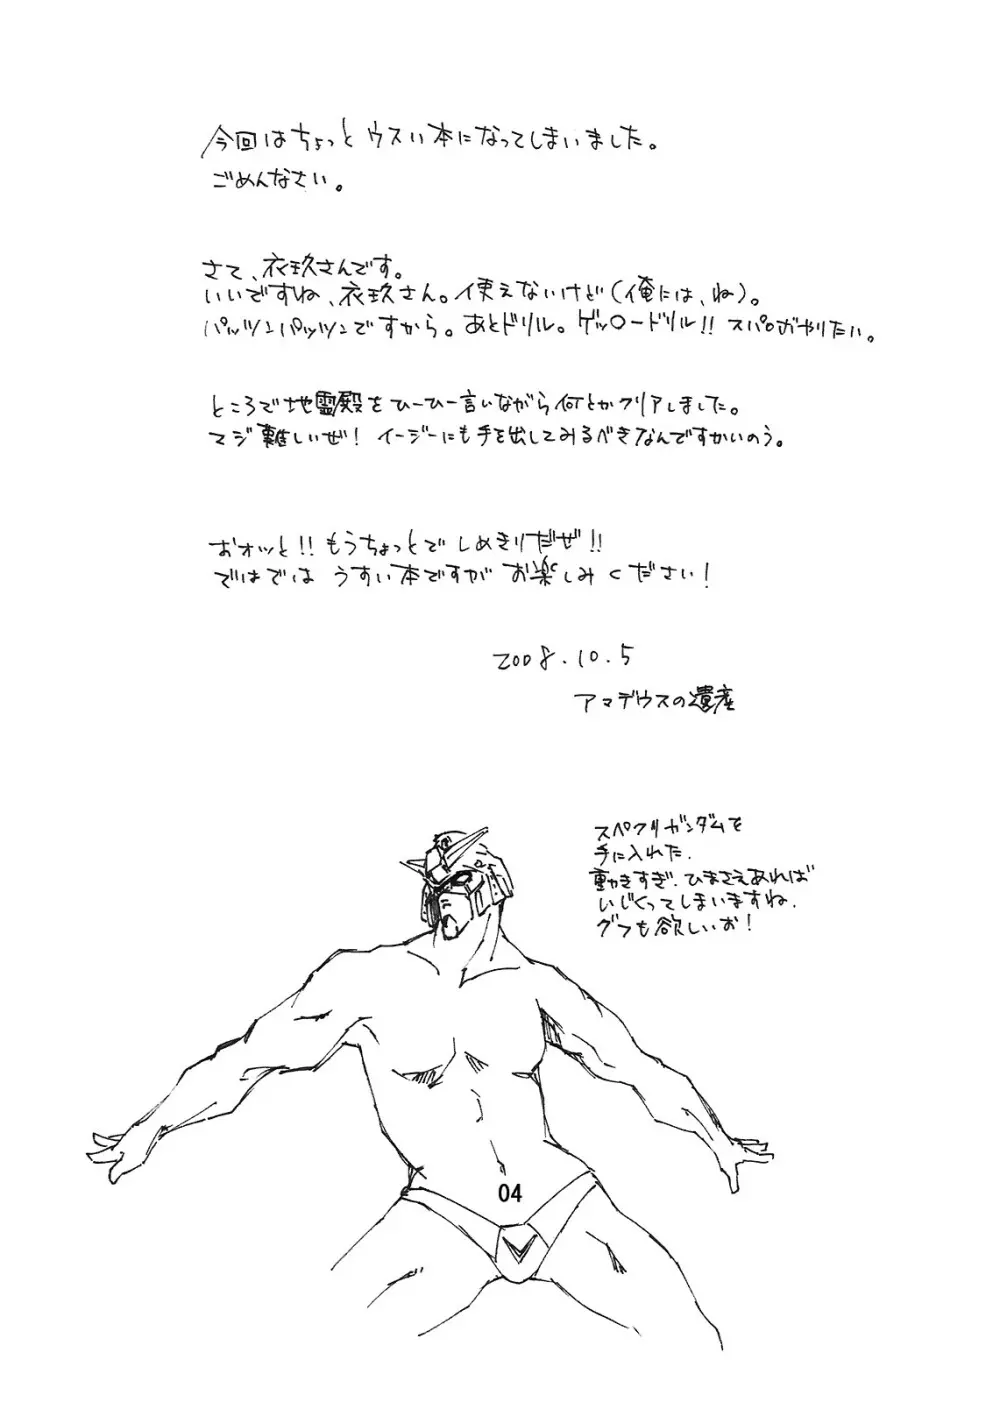 今回はちょっとウスい本になってしまいました。
ごめんなさい。
さて、衣玖さんです。
いいですね、衣玖さん。使えないけど(俺には、ね)。
パッツンパッツンですから。あとドリル。ゲッ○ードリル!!スパロボやりたい。
ところで地霊殿をひーひー言いながら何とかクリアしました。
マジ難しいぜ!イージーにも手を出してみるべきなんですかいのう。
おオッと!!もうちょっとでしめきりだぜ!!
ではでは うすい本ですが お楽しみください!
2008.10.5
アマデウスの遺産
スペクリガンダムを
手に入れた.
動きすぎ.ひまさえあれば
いじくってしまいますね.
グフも欲しいお!
04